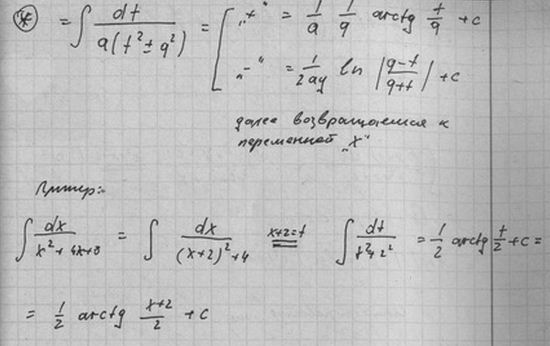 (*) = ∫ dt / a(t² ± q²) = [ „+“ = 1/a 1/q arctg t/q + c
„–“ = 1/2aq ln |q-t / q+t| + c
далее возвращаемся к
переменной „x“
Пример:
∫ dx / x² + 4x + 8 = ∫ dx / (x+2)² + 4 x+2=t = ∫ dt / t² + 2² = 1/2 arctg t/2 + c =
= 1/2 arctg x+2 / 2 + c